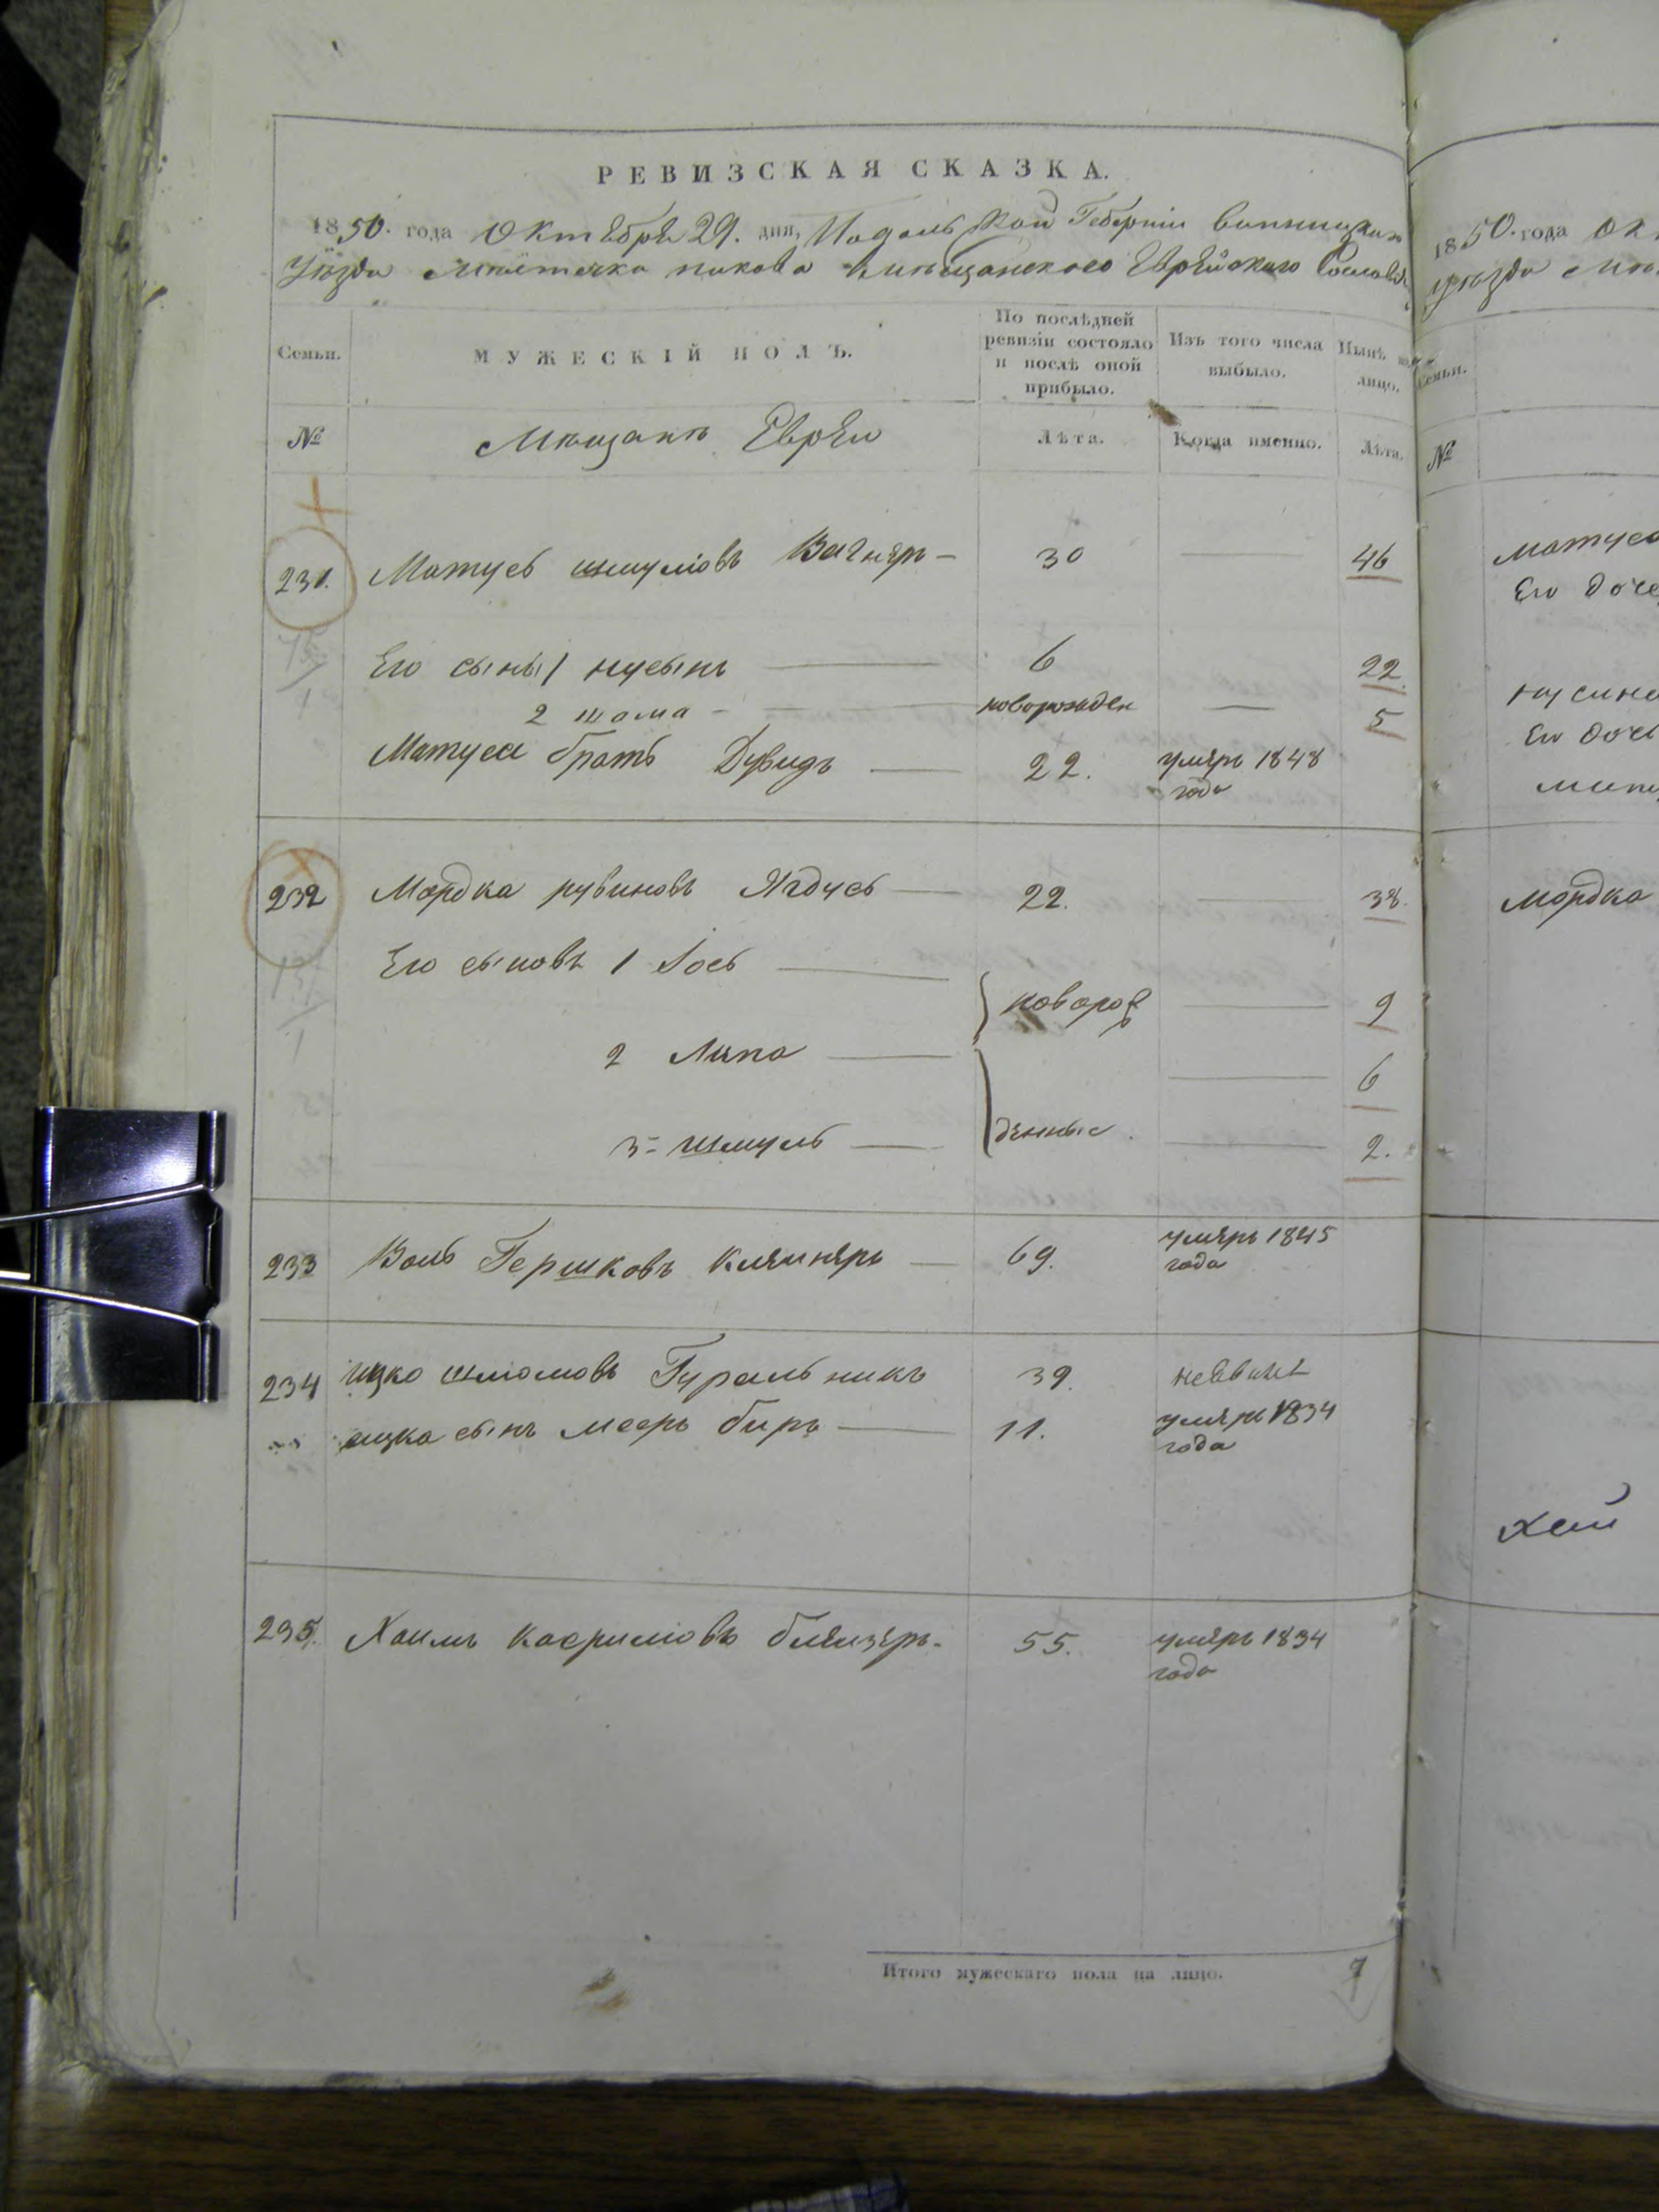 РЕВИЗСКАЯ СКАЗКА.
1850. года Октебре 29. дня, Подольской Губерніи винницкаго
Уѣзда мѣстечка пикова мѣщанскаго Еврѣйскаго Сословія
Семьи.
МУЖЕСКІЙ ПОЛЪ.
По послѣдней ревизіи состояло и послѣ оной прибыло.
Изъ того числа выбыло.
Нынѣ на лицо.
№
Мѣщане Евреи
Лѣта.
Когда именно.
Лѣта.
231. Матусь шмуліовъ Вагнеръ — 30 46
Его сыны 1 нусынъ 6 22.
2 шама - новорожден 5
Матуся братъ Дувидъ 22. умеръ 1848 года
232 Мордка рувиновъ Ягдусь 22. 38.
Его сыновъ 1 Іось
новорож 9
2 Липа
6
3- шмуль денные. 2.
233 Воль Гершковъ Клеинеръ 69. умеръ 1845 года
234 ицко шліомовъ Гуральникъ 39.
ицка сынъ меер беръ 11. умеръ 1834 года
235. Хаимъ касриліовъ блеизеръ- 55. умеръ 1834 года
Итого мужескаго пола на лицо. 7
1850. года Ок
уѣзда мѣ
Семьи.
№
матуса
Его доче
нусина
Его доч
мордка
хаи